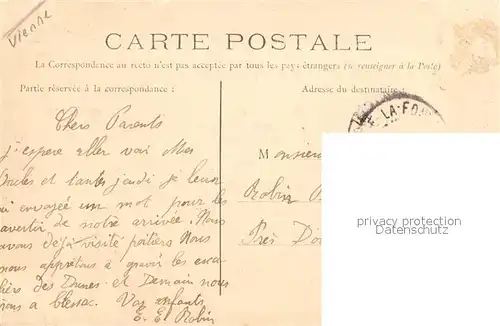 Vienne
CARTE POSTALE
La Correspondance au recto n'est pas acceptée par tous les pays étrangers (se renseigner à la Poste)
Partie réservée à la correspondance :
Adresse du destinataire :
LA-FO
Chers Parents
j'espere aller voir Mes
Oncles et tantes jeudi je leur
ai envoyée un mot pour les
avertir de notre arrivée. Nous
avons déjà visité poitiers Nous
nous apprêtons à gravir les esca
liers des Dunes et Demain nous
irons a blessac. Vos enfants
E. El Robin
Monsieur
Robin
Près D'o
privacy protection
Datenschutz